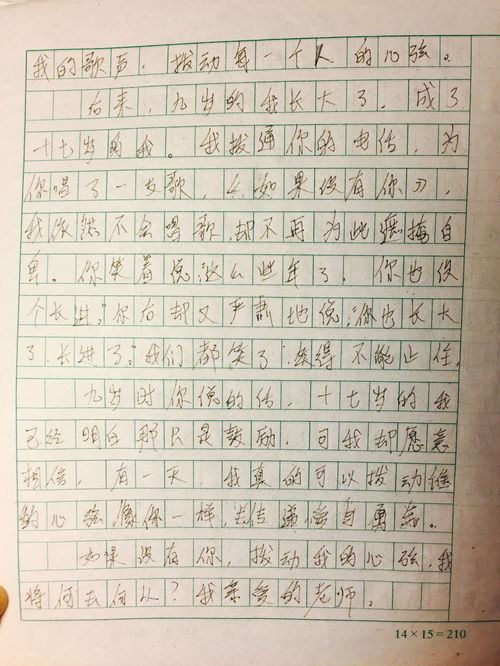 我的歌声，拨动每一个人的心弦。
后来，九岁的我长大了，成了
十七岁的我。我拨通你的电话，为
你唱了一支歌，《如果没有你》，
我依然不会唱歌却不再为此遮掩自
卑。你笑着说这么些年了，你也没
个长进，尔后却又严肃地说：“你也长大
了，长进了。”我们都笑了，笑得不能止住，
九岁时你说的话，十七岁的我
已经明白那只是鼓励，可我却愿意
相信，有一天，我真的可以拨动谁
的心弦，像你一样，去传递强自勇气。
如果没有你，拨动我的心弦，我
将何去何从？我亲爱的老师。
14×15=210